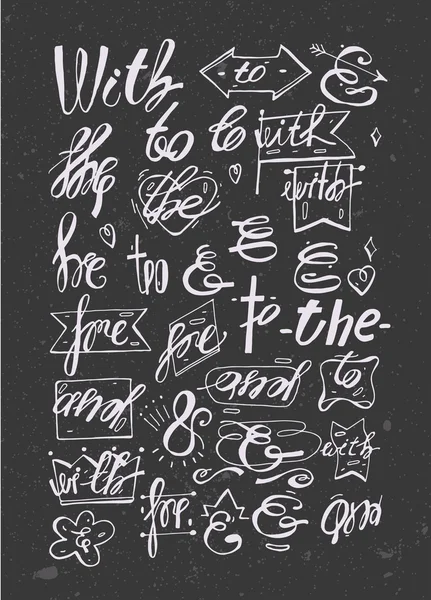 With to &
the to to with
the with
he to & & &
for for to -the-
and and to
& & with
with
& for & & on